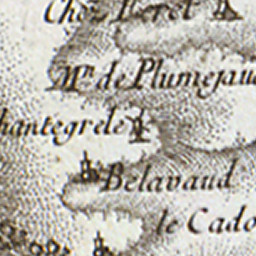 Chez Leret
Mn. de Plumejau
hantegrele
Belavaud
le Cado